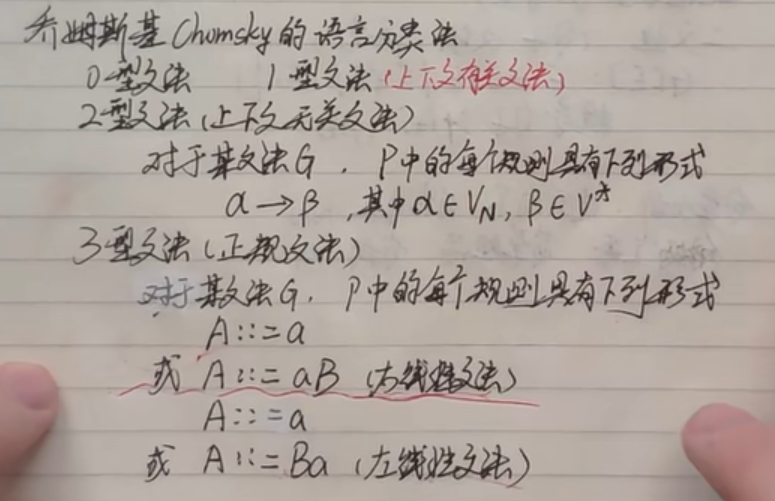 乔姆斯基Chomsky的语言分类法
0型文法 1型文法(上下文有关文法)
2型文法(上下文无关文法)
对于某文法G，P中的每个规则具有下列形式
α→β,其中α∈VN,β∈V*
3型文法(正规文法)
对于某文法G，P中的每个规则具有下列形式
A::=a
或 A::=aB (右线性文法)
A::=a
或 A::=Ba (左线性文法)